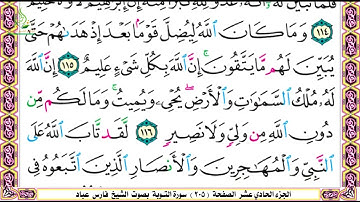 فَلَمَّا تَبَيَّنَ لَهُ
١١٤ وَمَا كَانَ ٱللَّهُ لِيُضِلَّ قَوْمًۢا بَعْدَ إِذْ هَدَىٰهُمْ حَتَّىٰ
يُبَيِّنَ لَهُم مَّا يَتَّقُونَ ۚ إِنَّ ٱللَّهَ بِكُلِّ شَىْءٍ عَلِيمٌ ١١٥ إِنَّ ٱللَّهَ
لَهُۥ مُلْكُ ٱلسَّمَٰوَٰتِ وَٱلْأَرْضِ ۖ يُحْىِۦ وَيُمِيتُ ۚ وَمَا لَكُم مِّن
دُونِ ٱللَّهِ مِن وَلِىٍّ وَلَا نَصِيرٍ ١١٦ لَّقَد تَّابَ ٱللَّهُ عَلَى
ٱلنَّبِىِّ وَٱلْمُهَٰجِرِينَ وَٱلْأَنصَارِ ٱلَّذِينَ ٱتَّبَعُوهُ فِى
الجزء الحادي عشر الصفحة (٢٠٥) سورة التوبة بصوت الشيخ فارس عباد